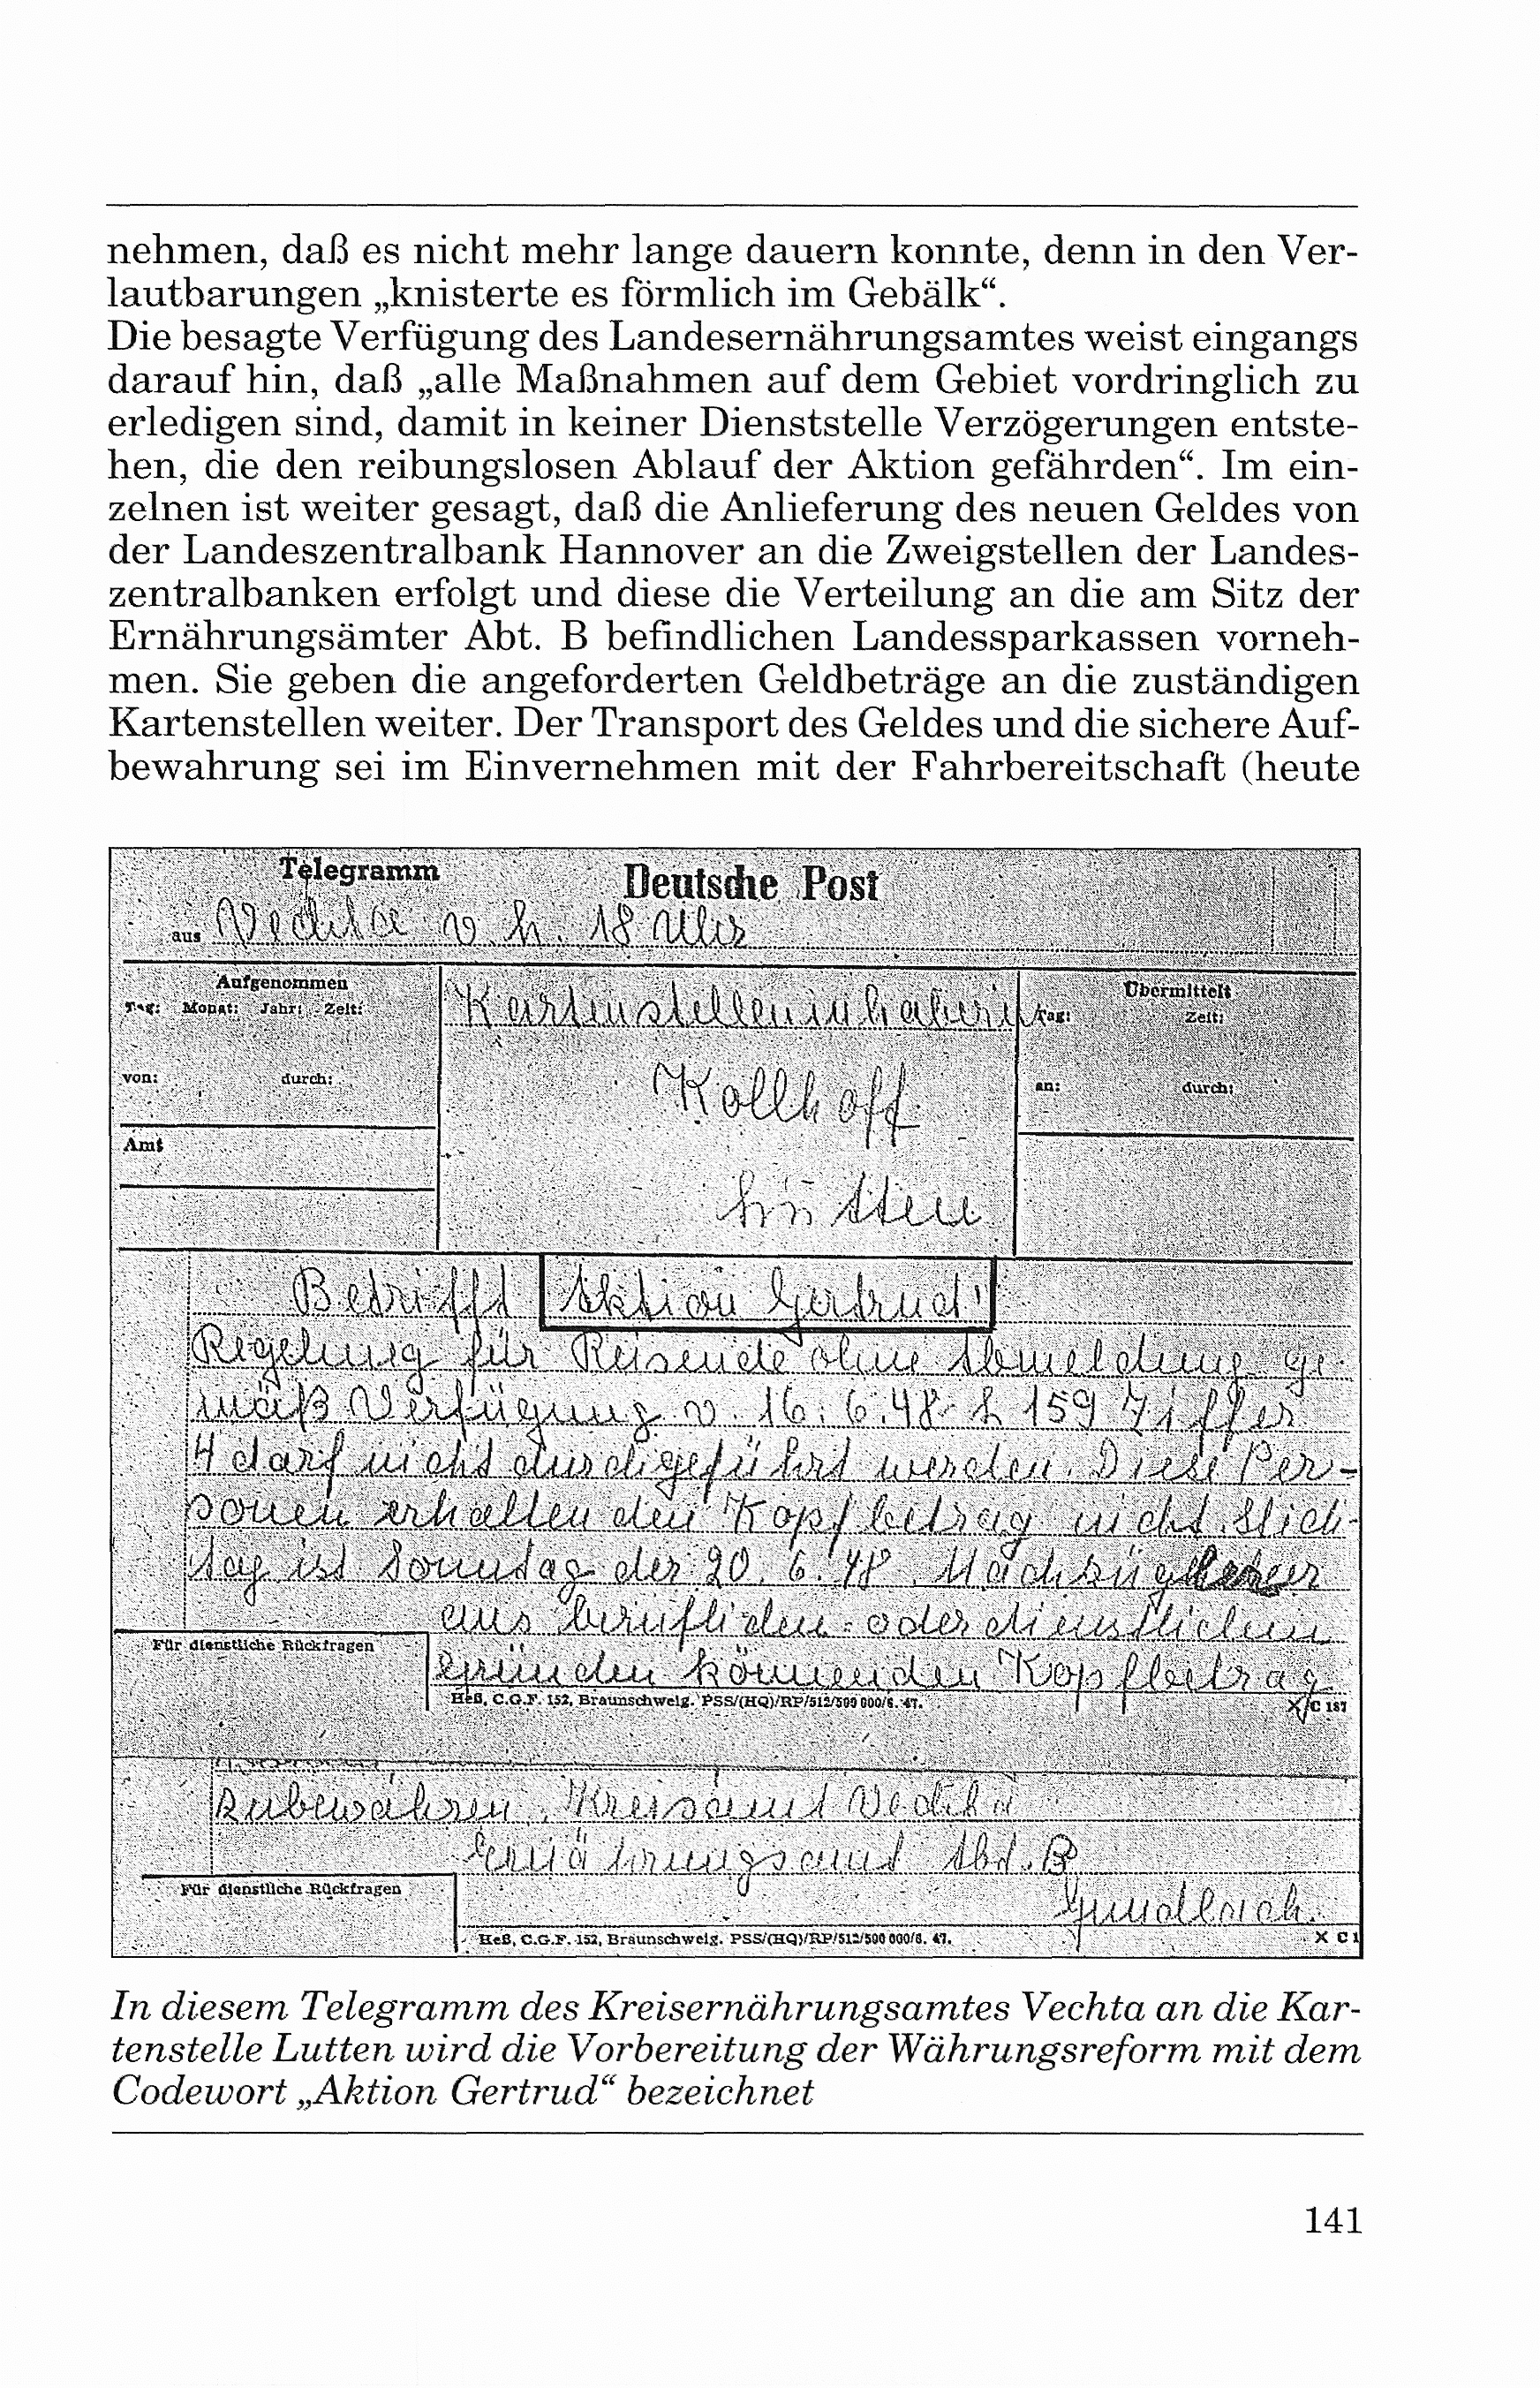 nehmen, daß es nicht mehr lange dauern konnte, denn in den Ver-
lautbarungen „knisterte es förmlich im Gebälk“.
Die besagte Verfügung des Landesernährungsamtes weist eingangs
darauf hin, daß „alle Maßnahmen auf dem Gebiet vordringlich zu
erledigen sind, damit in keiner Dienststelle Verzögerungen entste-
hen, die den reibungslosen Ablauf der Aktion gefährden“. Im ein-
zelnen ist weiter gesagt, daß die Anlieferung des neuen Geldes von
der Landeszentralbank Hannover an die Zweigstellen der Landes-
zentralbanken erfolgt und diese die Verteilung an die am Sitz der
Ernährungsämter Abt. B befindlichen Landessparkassen vorneh-
men. Sie geben die angeforderten Geldbeträge an die zuständigen
Kartenstellen weiter. Der Transport des Geldes und die sichere Auf-
bewahrung sei im Einvernehmen mit der Fahrbereitschaft (heute
Telegramm Deutsche Post
aus Vechta v. h. 18 Uhr
Aufgenommen
Tag: Monat: Jahr: Zeit:
von: durch:
Amt
Kartenstelleninhaberin
Kollhoff
Lutten
Übermittelt
Tag: Zeit:
an: durch:
Betrifft Aktion Gertrud!
Regelung für Reisende ohne Abmeldung ge-
mäß Verfügung v. 16.6.48 L 159 Ziffer
4 darf nicht durchgeführt werden. Diese Per-
sonen erhalten den Kopfbetrag nicht. Stich-
tag ist Sonntag der 20.6.48.
aus beruflichen oder dienstlichen
Gründen können den Kopfbetrag
Für dienstliche Rückfragen
Heß, C.G.F. 152, Braunschweig. PSS/(HQ)/RP/512/500 000/6. 47.
X/C 187
Kreisamt Vechta
Ernährungsamt Abt. B
Gundlach.
Für dienstliche Rückfragen
Heß, C.G.F. 152, Braunschweig. PSS/(HQ)/RP/512/500 000/6. 47.
X C 1
In diesem Telegramm des Kreisernährungsamtes Vechta an die Kar-
tenstelle Lutten wird die Vorbereitung der Währungsreform mit dem
Codewort „Aktion Gertrud“ bezeichnet
141